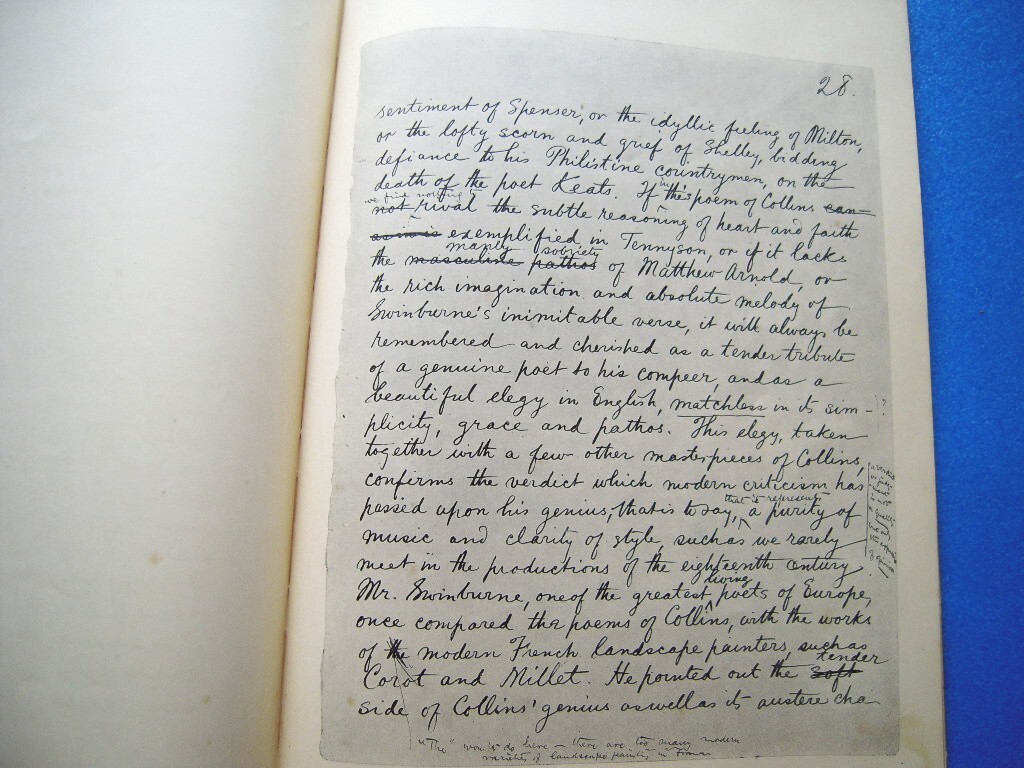 28.
sentiment of Spenser, or the idyllic feeling of Milton,
or the lofty scorn and grief of Shelley, bidding
defiance to his Philistine countrymen, on the
death of the poet Keats. If in this poem of Collins can-
we find nothing
not rival the subtle reasoning of heart and faith
as in is exemplified in Tennyson, or if it lacks
manly sobriety
the masculine pathos of Matthew Arnold, or
the rich imagination and absolute melody of
Swinburne's inimitable verse, it will always be
remembered and cherished as a tender tribute
of a genuine poet to his compeer, and as a
beautiful elegy in English, matchless in its sim- ?
plicity, grace and pathos. This elegy, taken
together with a few other masterpieces of Collins,
confirms the verdict which modern criticism has
that it represents
passed upon his genius, that is to say, a purity of
music and clarity of style, such as we rarely
meet in the productions of the eighteenth century.
living
Mr. Swinburne, one of the greatest poets of Europe,
once compared the poems of Collins, with the works
of the modern French landscape painters, such as
tender
Corot and Millet. He pointed out the soft
side of Collins' genius as well as its austere cha
"The" won't do here – there are too many modern
varieties of landscape painting in France